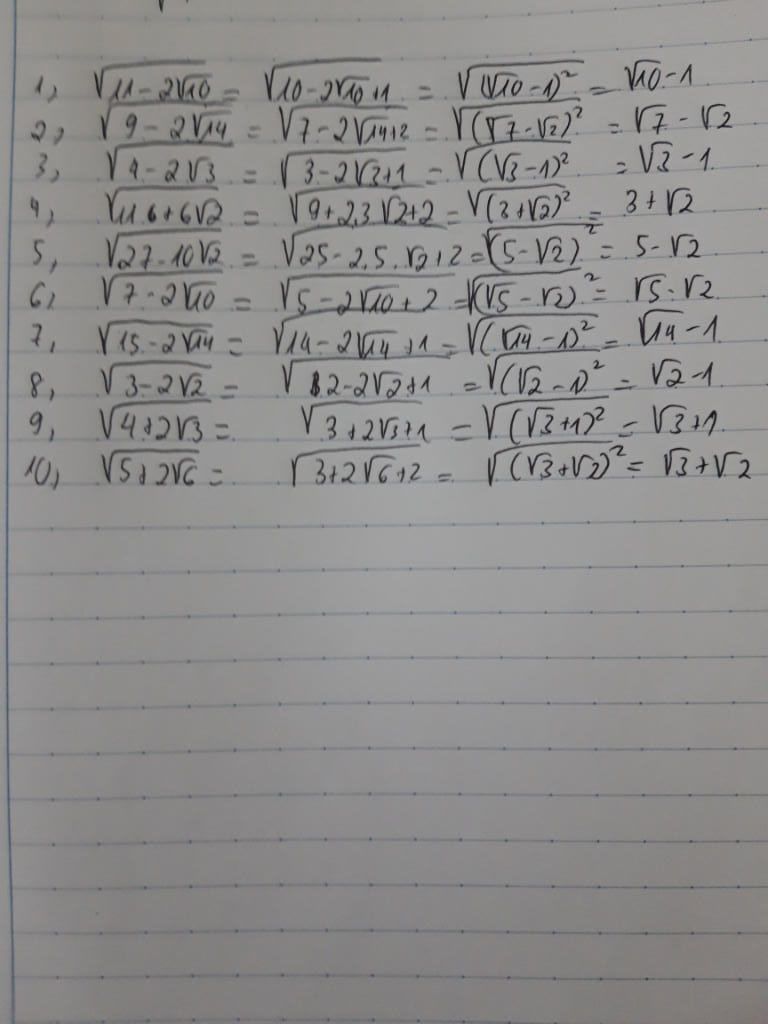 1, √(11-2√10) = √(10-2√10+1) = √((√10-1)²) = √10-1
2, √(9-2√14) = √(7-2√14+2) = √((√7-√2)²) = √7-√2
3, √(4-2√3) = √(3-2√3+1) = √((√3-1)²) = √3-1
4, √(11.6+6√2) = √(9+2.3√2+2) = √((3+√2)²) = 3+√2
5, √(27-10√2) = √(25-2.5.√2+2) = √((5-√2)²) = 5-√2
6, √(7-2√10) = √(5-2√10+2) = √((√5-√2)²) = √5-√2
7, √(15-2√14) = √(14-2√14+1) = √((√14-1)²) = √14-1
8, √(3-2√2) = √(2-2√2+1) = √((√2-1)²) = √2-1
9, √(4+2√3) = √(3+2√3+1) = √((√3+1)²) = √3+1
10, √(5+2√6) = √(3+2√6+2) = √((√3+√2)²) = √3+√2